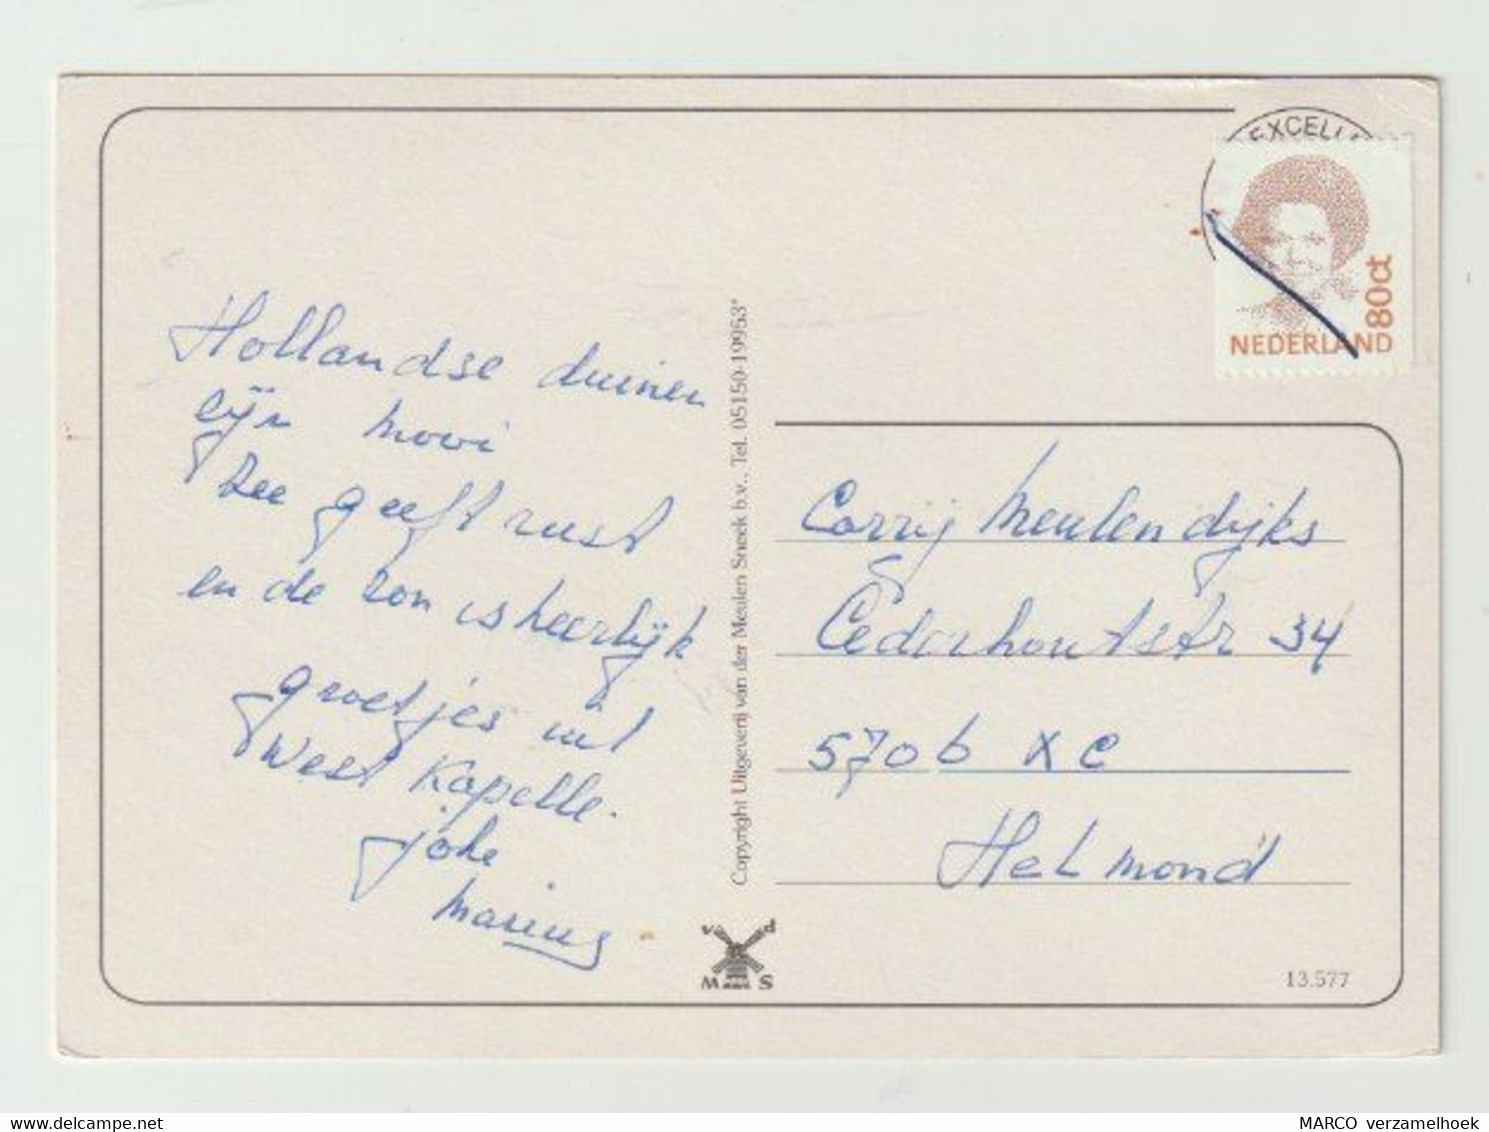 EXCELL
80ct
NEDERLAND
Hollandse duinen
zijn mooi
Zee geeft rust
en de zon is heerlijk
groetjes uit
West Kapelle.
joke
Marius
Copyright Uitgeverij van der Meulen Sneek b.v., Tel. 05150-19953*
Corrij Meulendijks
Cederhoutstr 34
5706 XC
Helmond
v d
M S
13.577
MARCO verzamelhoek